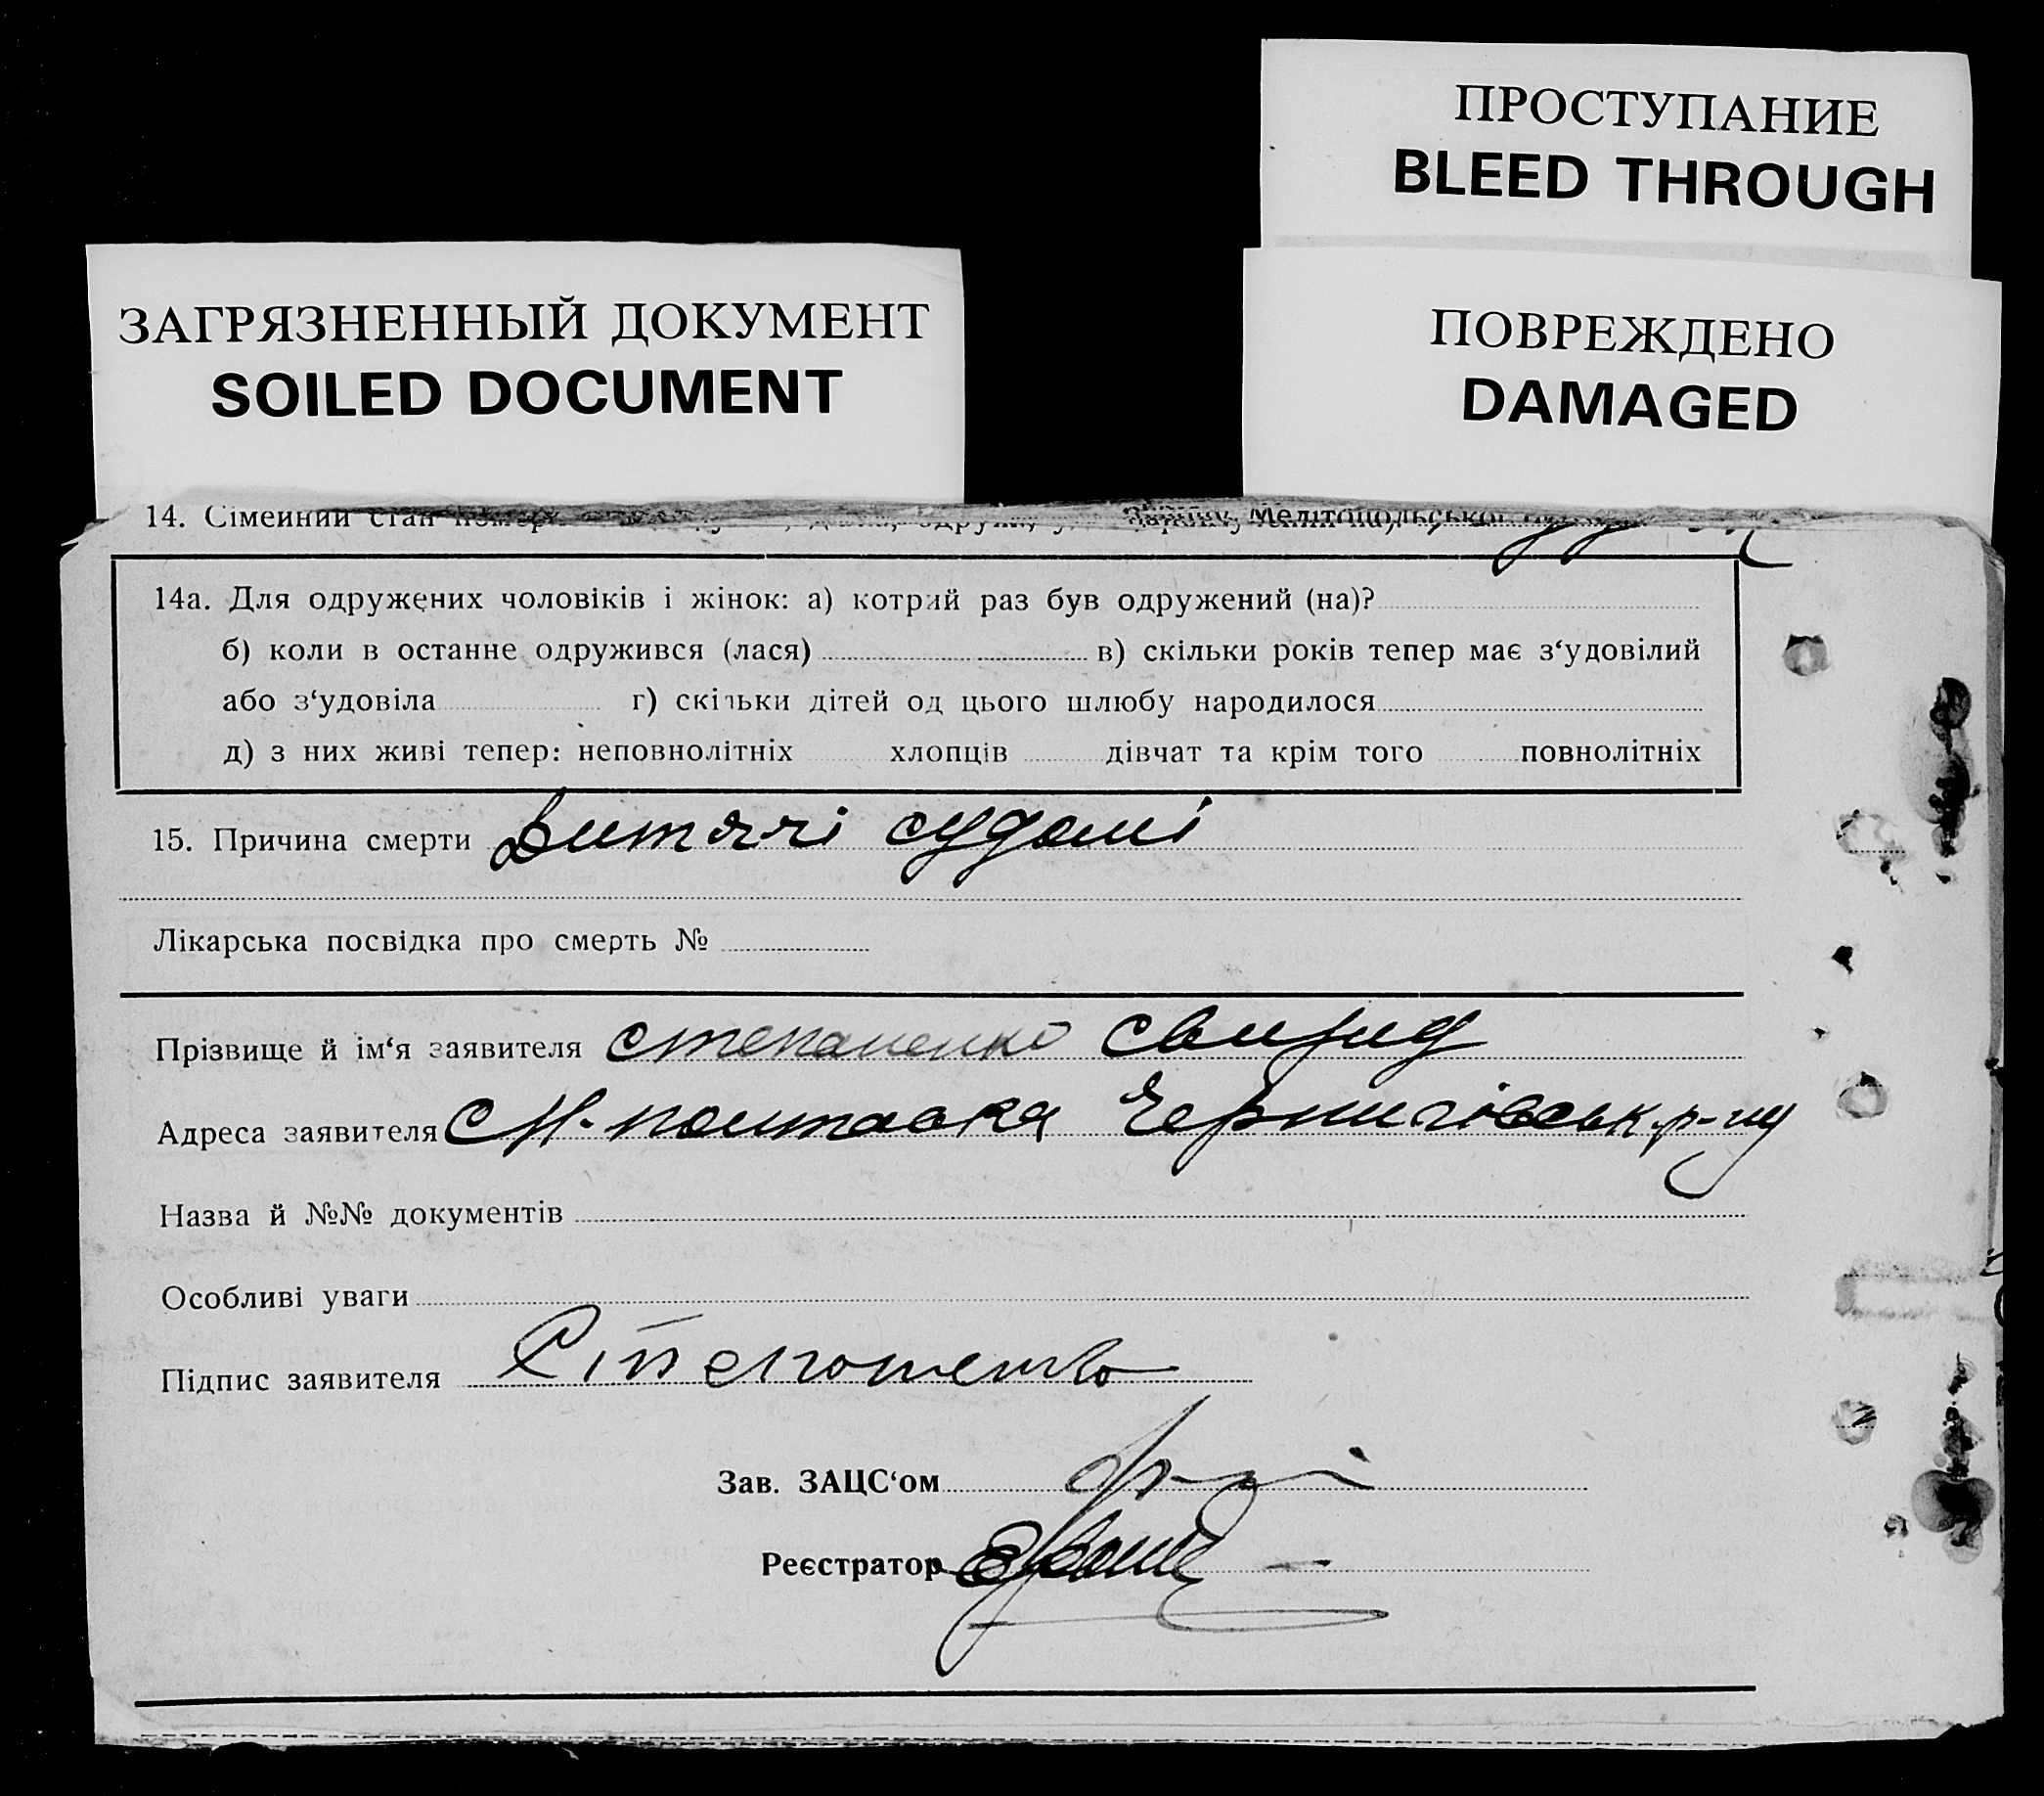 ПРОСТУПАНИЕ
BLEED THROUGH
ЗАГРЯЗНЕННЫЙ ДОКУМЕНТ
SOILED DOCUMENT
ПОВРЕЖДЕНО
DAMAGED
14. Сімейний стан Мелітопольської
14а. Для одружених чоловіків і жінок: а) котрий раз був одружений (на)?
б) коли в останне одружився (лася) в) скільки років тепер має з‘удовілий
або з‘удовіла г) скільки дітей од цього шлюбу народилося
д) з них живі тепер: неповнолітніх хлопців дівчат та крім того повнолітніх
15. Причина смерти Дитячі судомі
Лікарська посвідка про смерть №
Прізвище й ім‘я заявителя Степаненко Свирид
Адреса заявителя с Н. полтавка Чернигівськ. р-ну
Назва й №№ документів
Особливі уваги
Підпис заявителя Степоненко
Зав. ЗАЦС‘ом
Реєстратор